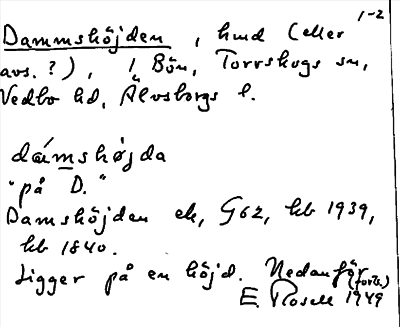 1-2
Dammshöjden, hmd (eller
avs. ?), 1 Bön, Torrskogs sn,
Vedbo hd, Älvsborgs l.
dámshøjda
"på D."
Damshöjden ek, G62, hb 1939,
hb 1840.
Ligger på en höjd. Nedanför
(forts.)
E. Rosell 1949